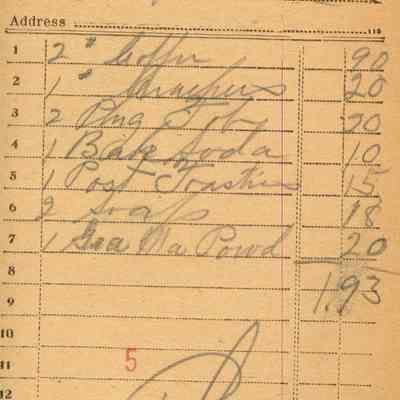 Address
1 2 # Coffee 90
2 1 # 20
3 2 Plug Tob 20
4 1 Bak Soda 10
5 1 Post Toasties 15
6 2 Soap 18
7 1 Gra Ma Powd 20
8
9 1.93
10
11 5
12